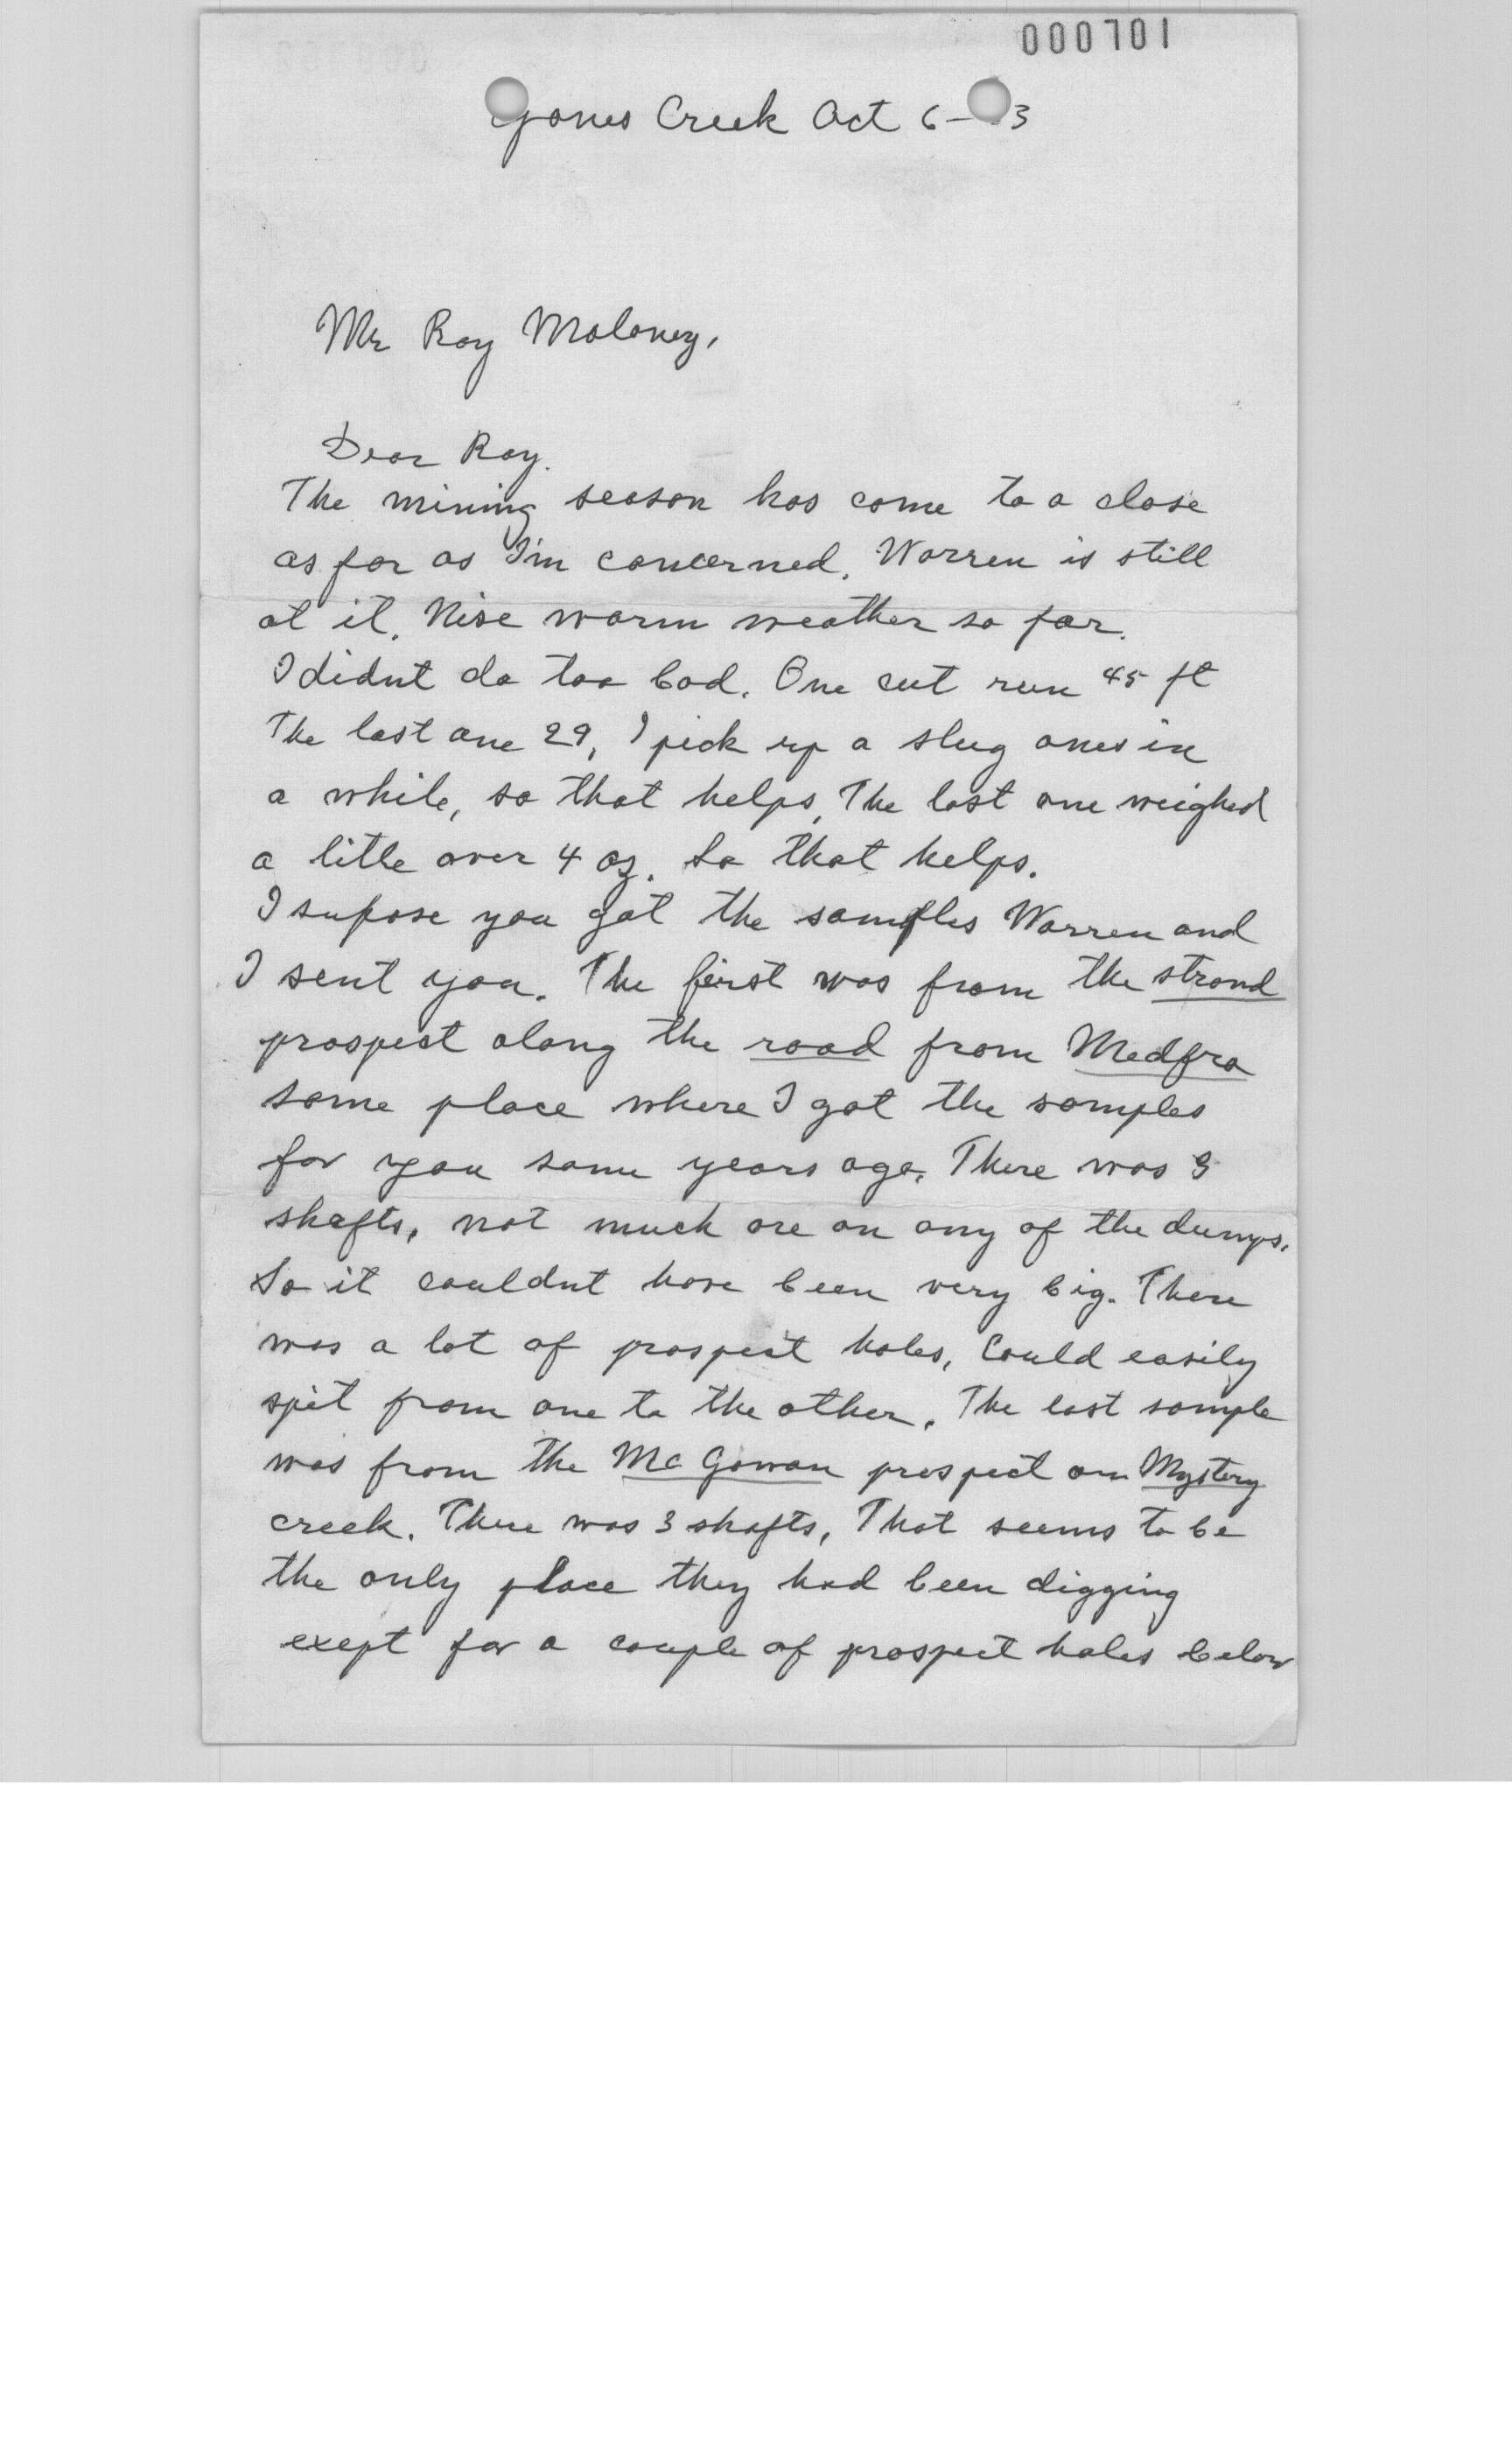 000701
Creek Oct 6- 3
Mr Roy Maloney,
Dear Roy.
The mining season has come to a close
as far as I'm concerned. Warren is still
at it. Nise warm weather so far.
I didnt do too bad. One cut run 45 ft
The last one 29, I pick up a slug ones in
a while, so that helps, The last one weighed
a litle over 4 oz. So that helps.
I supose you got the samples Warren and
I sent you. The first was from the strand
prospect along the road from Medfra
same place where I got the samples
for you some years ago. There was 3
shafts, not much ore on any of the dumps.
So it couldnt have been very big. There
was a lot of prospect holes, Could easily
spit from one to the other. The last sample
was from the Mc Gowan prospect on Mystery
creek. There was 3 shafts, That seems to be
the only place they had been digging
exept for a couple of prospect holes below